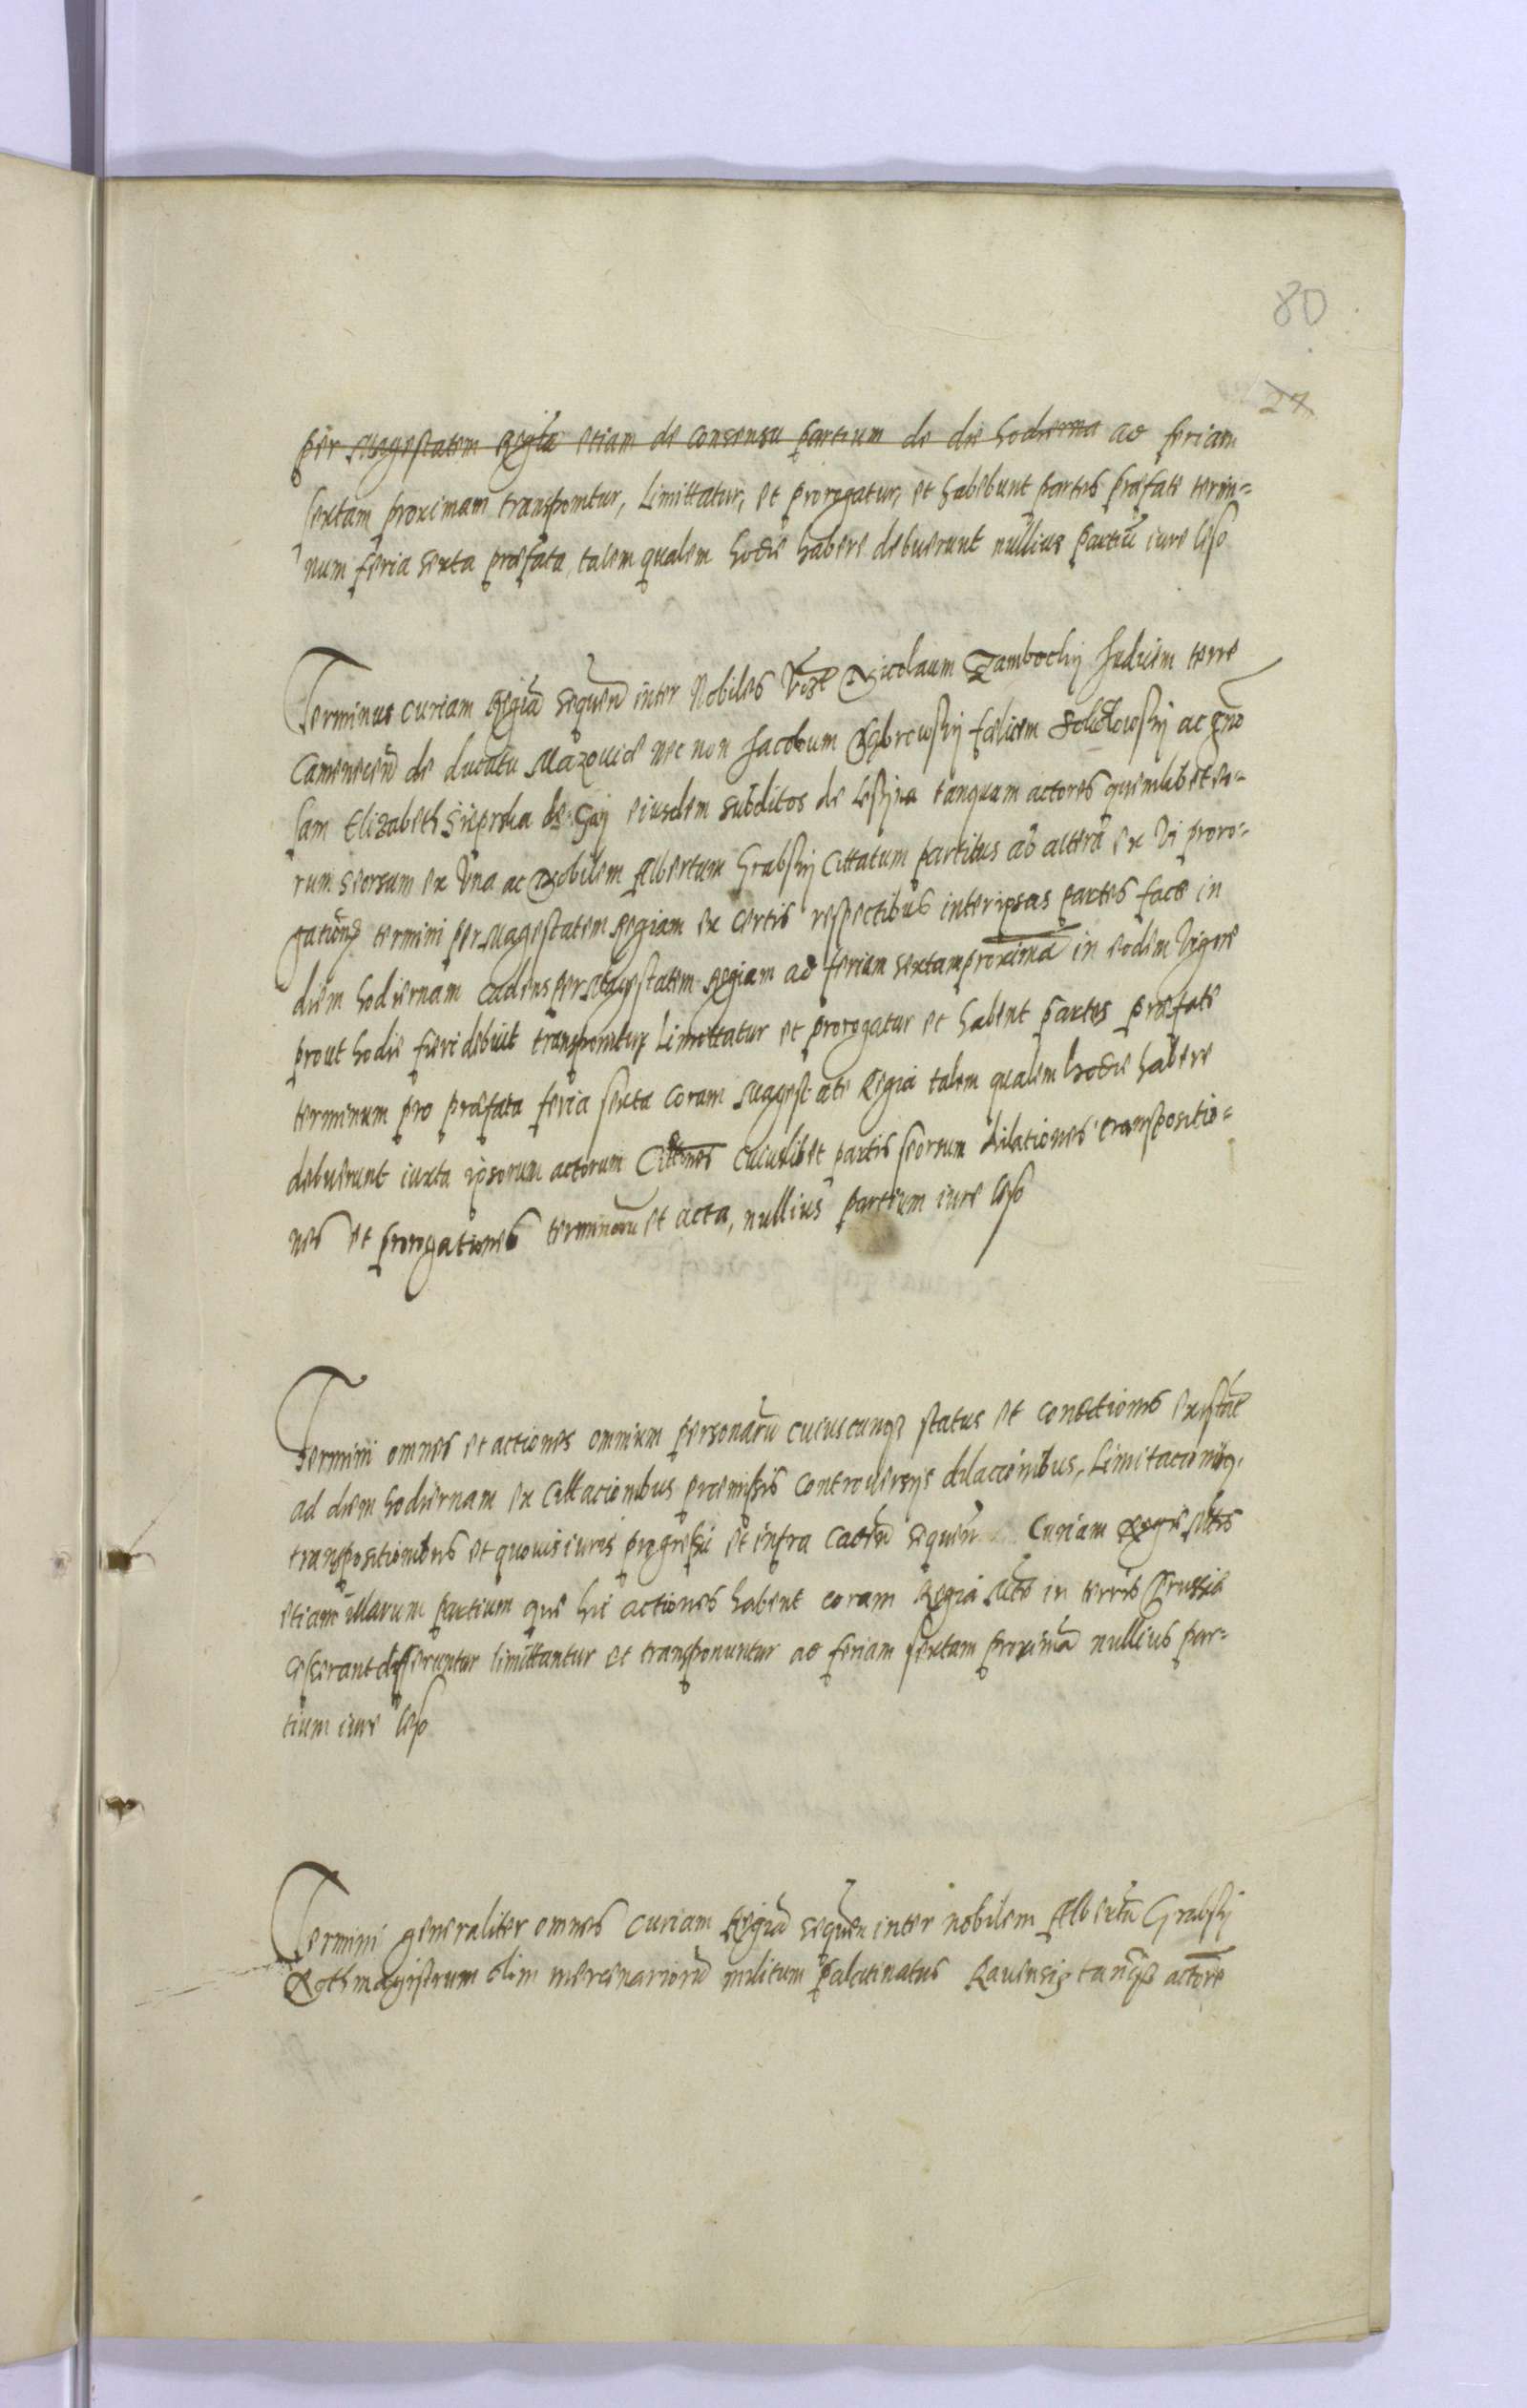 80
24
per Magestatem Regia etiam de consensu partium de die hodierna ad feriam
sextam proximam transponitur, Limittatur, et prorogatur, et habebunt partes præfate termi-
num feria sexta præfata, talem qualem hodie habere debuerunt nullius partiu iure leso
Terminus curiam Regia sequen inter Nobiles Nicolaum Zambockij Iudicem terre
Camenecen de ducatu Mazouiæ nec non Jacobum fælicem ac
sam Elizabeth de eiusdem subditos de tanquam actores quemlibet eo-
rum seorsum ex Vna ac Nobilem Albertum Grabskij Cittatum partibus ab altera ex Vi proro-
termini per Magestatem Regiam ex certis respectibus inter ipsas partes factæ in
diem hodiernam cadens per Magestatem Regiam ad feriam sextam proxima in eodem Vigore
prout hodie fieri debuit transponitur Limittatur et prorogatur et habent partes præfate
terminum pro præfata feria sexta coram Magestate Regia talem qualem hodie habere
debuerunt iuxta ipsorum actorum Citt̄ones cuiuslibet partis seorsum dilationes transpositio-
nes et prorogationes terminoru et acta, nullius partium iure leso
Termini omnes et actiones omnium personaru cuiuscunq status et conditionis
ad diem hodiernam ex Cittacionibus præmissis controuersijs dilacionibus, Limitacionibq,
transpositionibus et quouis iuris progressu et infra caden sequen Curiam Regie Mtis
etiam illarum partium que hic actiones habent coram Regia Mte in terris Prussie
differuntur limittantur et transponuntur ad feriam sextam proxima nullius par-
tium iure leso
Termini generaliter omnes curiam Regia sequen inter nobilem Albertu Grabskij
Rothmagistrum olim mercenarioru militum Palatinatus Rauensis tanq actore